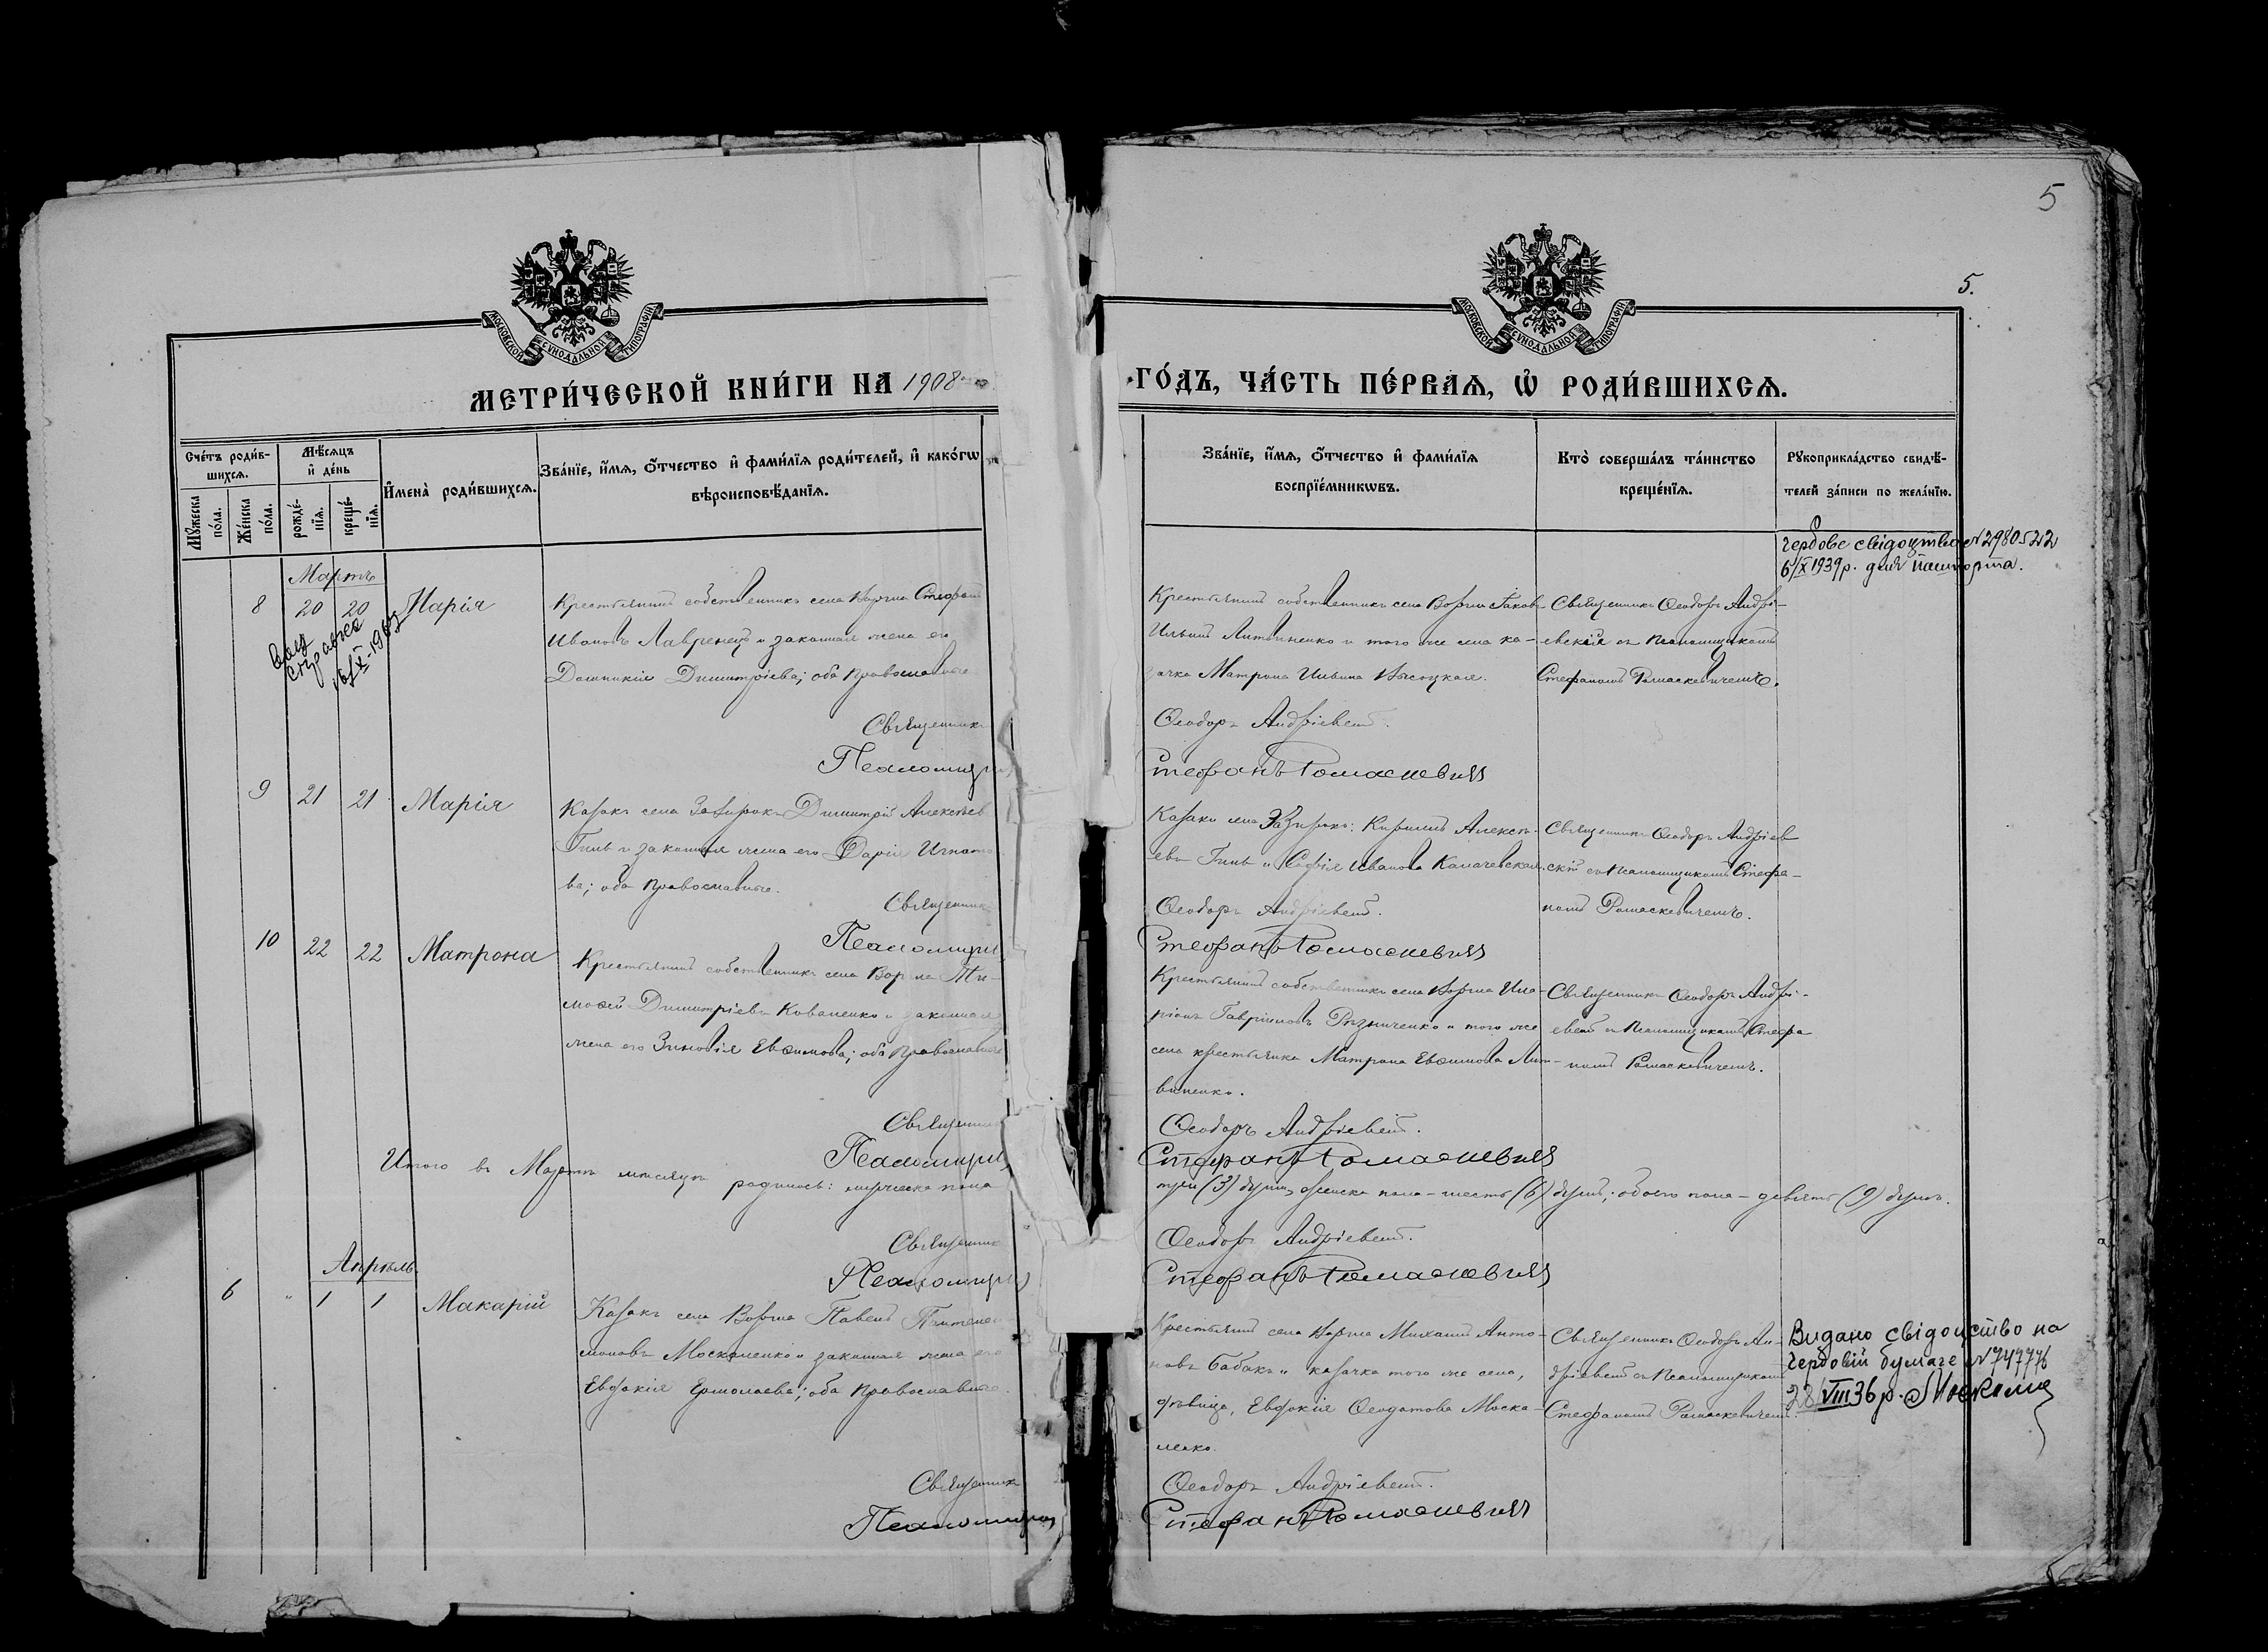 5
5.
МОСКОВСКОЙ СѴНОДАЛЬНОЙ ТИПОГРАФІИ
МОСКОВСКОЙ СѴНОДАЛЬНОЙ ТИПОГРАФІИ
МЕТРИ́ЧЕСКОЙ КНИ́ГИ НА 1908
ГО́ДЪ, ЧА́СТЬ ПЕ́РВАѦ, Ѡ҆ РОДИ́ВШИХСѦ.
Сче́тъ роди́в-
шихсѧ.
Мꙋ́жеска по́ла.
Же́нска по́ла.
Мѣ́сѧцъ и҆ де́нь
рожде́-
нїѧ.
креще́-
нїѧ.
И҆мена̀ роди́вшихсѧ.
Зва́нїе, и҆́мѧ, ѻ҆́тчество и҆ фами́лїѧ роди́телей, и҆ како́гѡ
вѣроисповѣ́данїѧ.
Зва́нїе, и҆́мѧ, ѻ҆́тчество и҆ фами́лїѧ
воспрїе́мникѡвъ.
Кто̀ соверша́лъ та́инство
креще́нїѧ.
Рꙋкоприкла́дство свидѣ́-
телей за́писи по жела́нїю.
Мартъ
8 20 20 Марія
Крестьянинъ собственникъ села Воргла Стефанъ
Ивановъ Лавренецъ и законная жена его
Домникія Димитріева; оба Православные
Священникъ
Псаломщикъ
Крестьянинъ собственникъ села Воргла Іаковъ
Ильинъ Литвиненко и того же села ка-
зачка Матрона Ильина Высоцкая.
Ѳеодоръ Андріевскій.
Стефанъ Ромаскевичъ
Священникъ Ѳеодоръ Андрі-
евскій съ Псаломщикомъ
Стефаномъ Ромаскевичемъ.
гербове свідоцтво № 2980522
6/X 1939р. для пашпорта.
16/X-1967
9 21 21 Марія
Казакъ села Зазирокъ Димитрій Алексѣев
Гинь и законная жена его Дарія Игнато
ва; оба Православные.
Священникъ
Псаломщикъ
Казаки села Зазирокъ: Кириллъ Алексѣ-
евъ Гинь и Софія Иванова Калачевская.
Ѳеодоръ Андріевскій.
Стефанъ Ромаскевичъ
Священникъ Ѳеодоръ Андріев
скій съ Псаломщикомъ Стефа-
номъ Ромаскевичемъ.
10 22 22 Матрона
Крестьянинъ собственникъ села Воргла Ти-
моѳей Димитріевъ Коваленко и законная
жена его Зиновія Евѳимова; оба Православные
Священникъ
Псаломщикъ
Крестьянинъ собственникъ села Воргла Ила-
ріонъ Гавріиловъ Рѣзниченко и того же
села крестьянка Матрона Евѳимова Лит-
виненко.
Ѳеодоръ Андріевскій.
Стефанъ Ромаскевичъ
Священникъ Ѳеодоръ Андрі-
евскій съ Псаломщикомъ Стефа
номъ Ромаскевичемъ.
Итого въ Мартѣ мѣсяцѣ родилось: мужеска пола
три (3) души, женска пола - шесть (6) душъ, обоего пола - девять (9) душъ.
Священникъ
Псаломщикъ
Ѳеодоръ Андріевскій.
Стефанъ Ромаскевичъ
Апрѣль
6 " 1 1 Макарій
Казакъ села Воргла Павелъ Пантелеи
моновъ Москаленко и законная жена его
Евдокія Ермолаева; оба Православные.
Священникъ
Псаломщикъ
Крестьянинъ села Воргла Михаилъ Анто-
новъ Бабакъ и казачка того же села,
дѣвица, Евдокія Ѳеодотова Моска-
ленко.
Ѳеодоръ Андріевскій.
Стефанъ Ромаскевичъ
Священникъ Ѳеодоръ Ан-
дріевскій съ Псаломщикомъ
Стефаномъ Ромаскевичемъ.
Видано свідоцство на
гербовій бумаге № 747776
28/VIII 36 р.